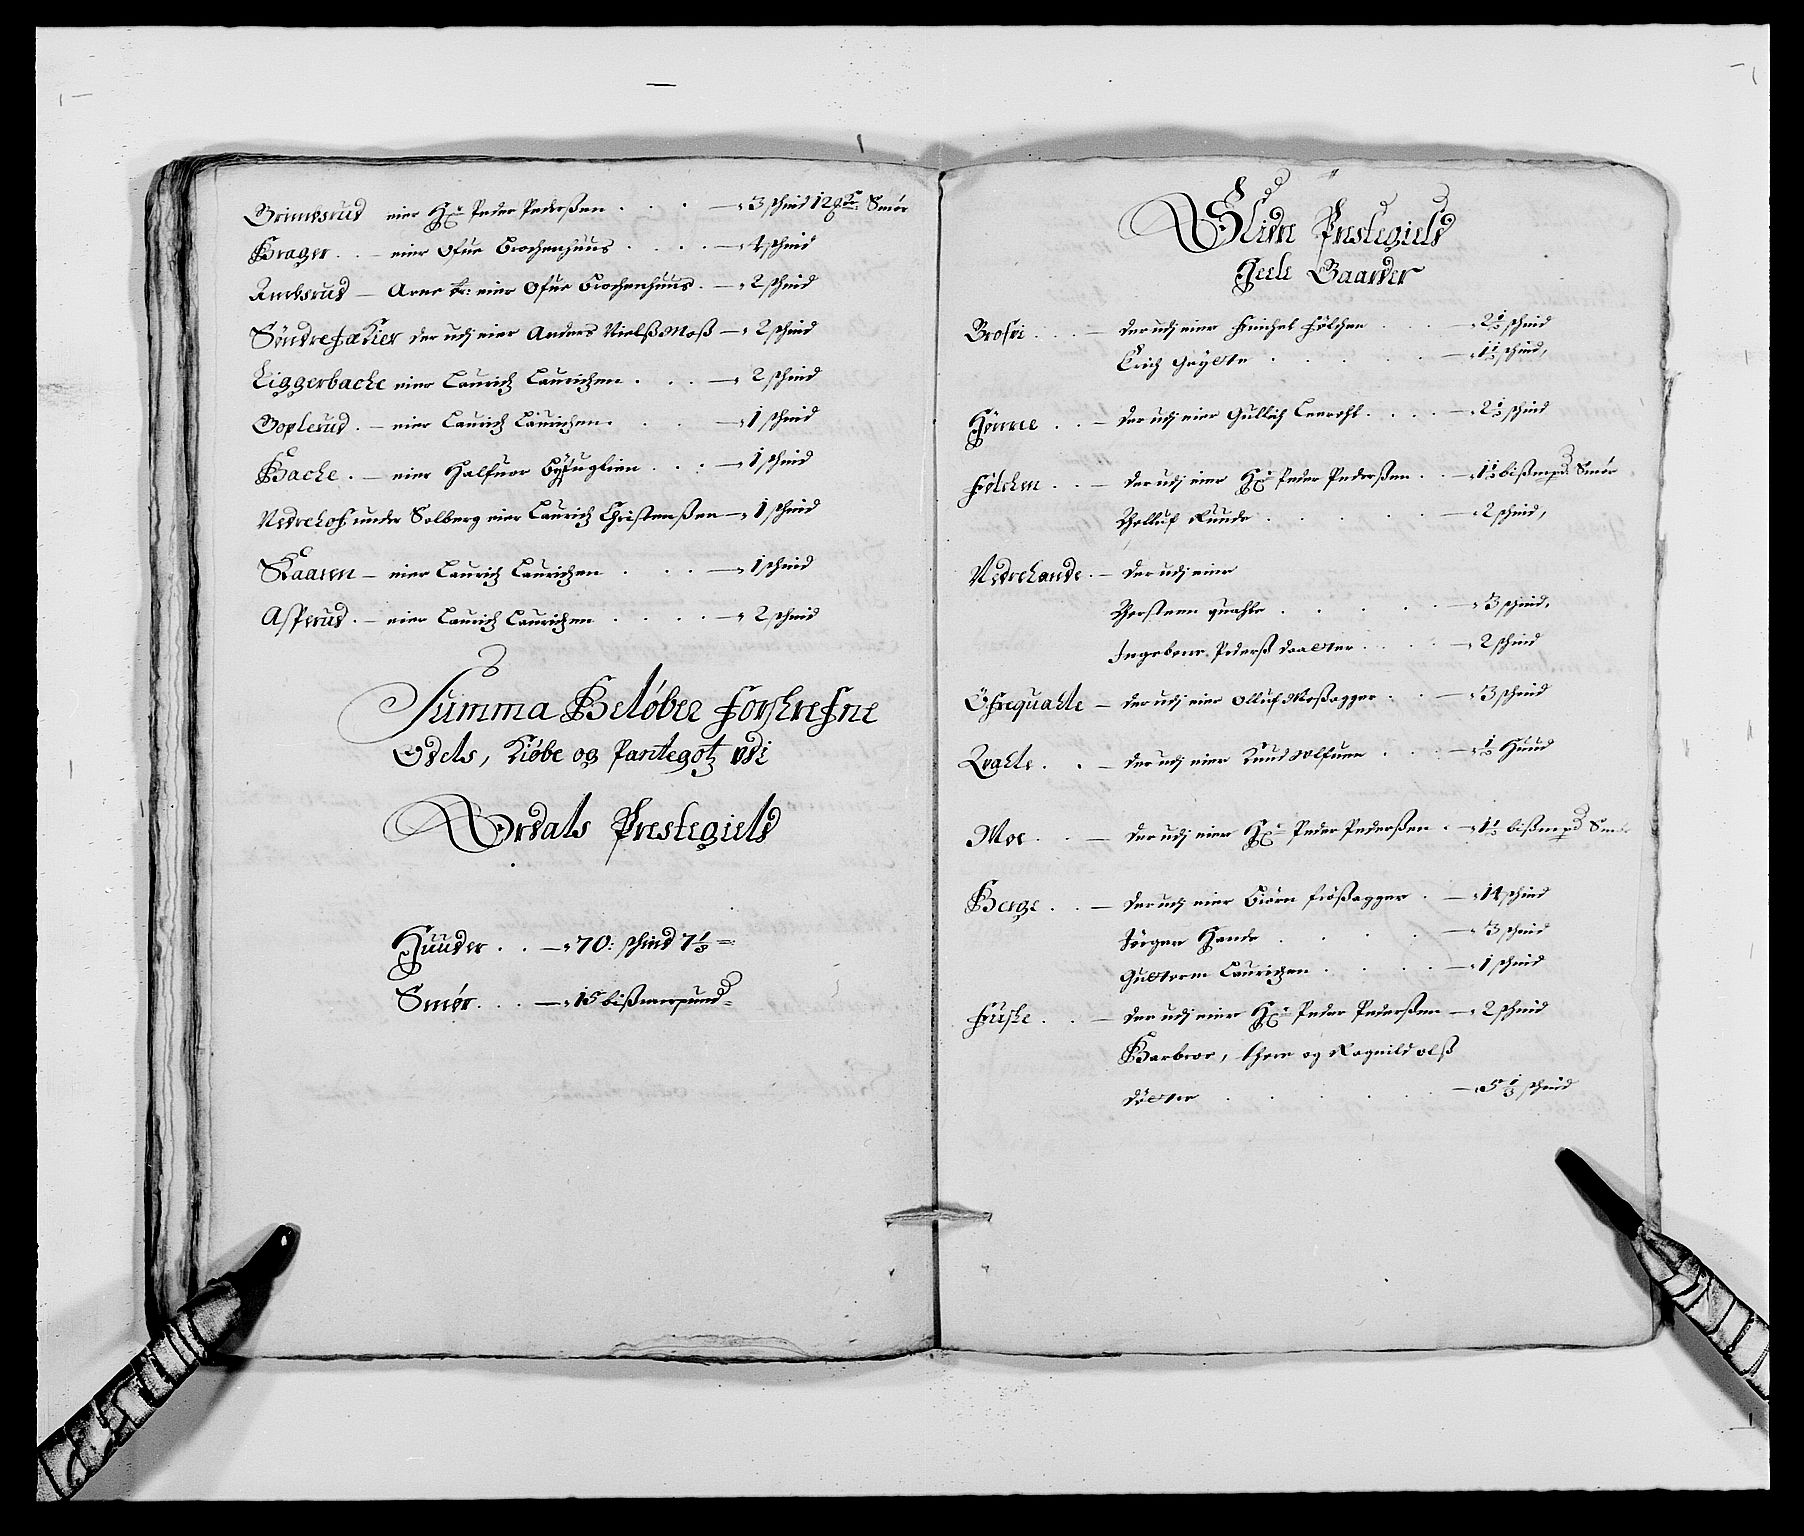 Grimbsrud eier Hr: Peder Pederßen . . . — 3 schind 12 Smør
Krager . . — eier Ofue Brochenhuus . . . . — 4 schind
Ambsrud — Arne br: eier Ofue Brochenhuus . — 2 schind
Søndre der udj eier Anders Nielß Moß — 2 schind
Liggerbache eier Laurich Laurichen . . . — 2 schind
Goplerud . — eier Laurich Laurichen . . . — 1 schind
Bache . — eier Halfuor . . . — 1 schind
Nedrehof under Solberg eier Laurich Christenßen — 1 schind
Skaaren — eier Laurich Laurichen . . . — 1 schind
Asperud . — eier Laurich Laurichen . . . . — 2 schind
Summa Beløber forskrefne
Odels, Kiøbe og Pantegotz udi
Ordals Prestegield
Huuder . . — 70: schind 7½
Smør . . . — 15 bißmerpund
Slidre Prestegield
Heele Gaarder
. . . — der udj eier Følchen . . . — 2½ schind
Erich . . . . — 1½ schind,
Hønne . . — der udj eier Gullich . . . . — 2½ schind
Følchen . . . — der udj eier Hr: Peder Pederßen . . — 1½ bißmpd Smør
Tholluf Runde . . . . . — 2 schind,
Nedrehande . — der udj eier
Thorsteen quahle . . . . . — 3 schind,
Ingeborre Pederß daatter . . . — 2 schind
Øfrequahle — der udj eier Olluf Moßagger . . — 3 schind
Qvahle . . — der udj eier Knud . . . — ½ Huud
Moe . . — der udj eier Hr: Peder Pederßen . — 1½ bißmpd Smør
Berge . . — der udj eier Biørn . — 14 schind
Jørgen Hande . . . . — 3 schind
Guttorm Laurichen . . . . — 1 schind
. . — der udj eier Hr: Peder Pederßen — 2 schind
Barbroe, og Ragnild olß
døtter . . . . . — 5½ schind